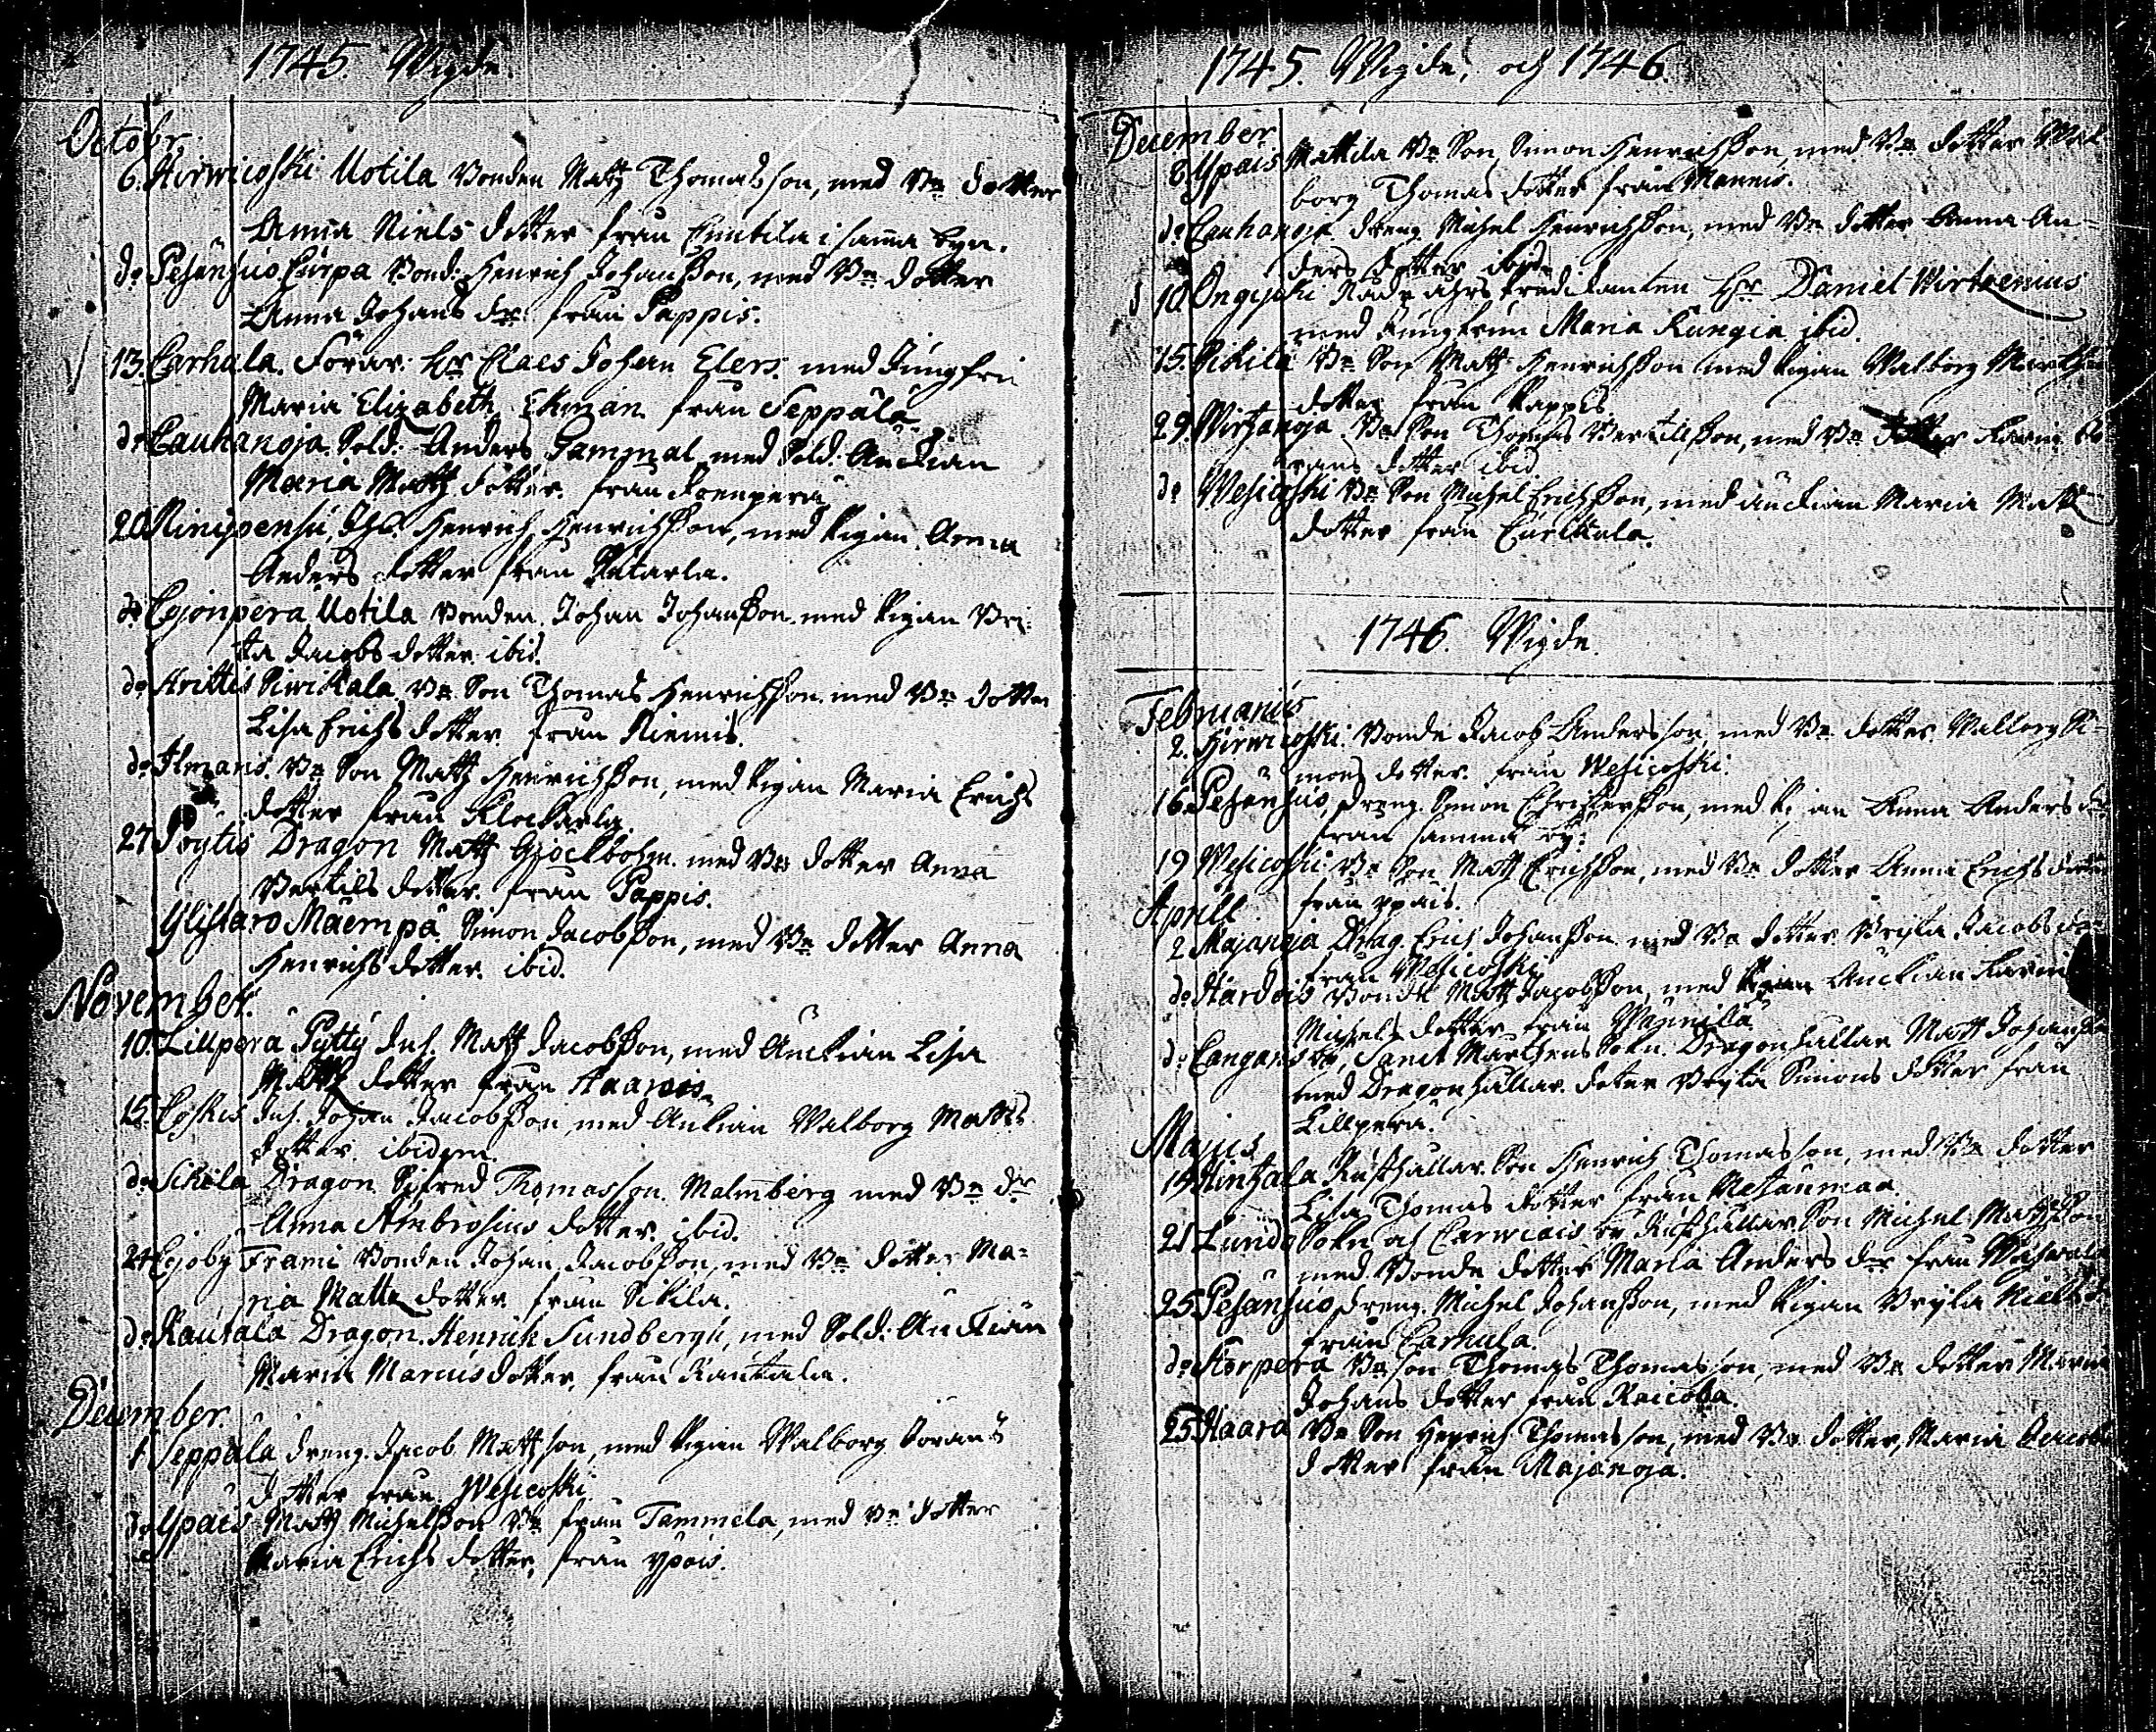 1745. Wigde.
Octobr.
6. Hirwicoski Uotila Bonden Matz Thomasson, med Bn dotter
Anna Niels dotter från i samma byn.
do Pesänsuo Curpa Bond: Henrich Johansson, med Bn dotter
Anna Johans dr från Pappis.
13. Carhula. Förar: Hr Claes Johan Elers. med Jungfru
Maria Elizabeth Ekman från Seppälä
do Cauhanoja. Sold: Anders Gammal med Sold: Änckian
Maria Matz dotter. från
20. Niinipensu, Henrich Henrichsson, med Pigan Anna
Anders dotter från
do Cyrönperä Uotila Bonden. Johan Johansson. med Pigan Bri-
ta Jacobs dotter ibid.
do Krittis Bn Son Thomas Henrichsson. med Bn dotter
Lisa Erichs dotter. från Niemis.
do Ilmaris. Bn Son Matz Henrichsson, med Pigan Maria Erichs
dotter från Klockarla.
27 Pöytis Dragon Matz med Bn dotter Anna
Bertils dotter. från Pappis.
Ylistaro Mäempä. Simon Jacobsson, med Bn dotter Anna
Henrichs dotter. ibid.
November.
10. Lillperä Pytty Inh. Matz Jacobsson, med Änckian Lisa
Matz dotter från Haaroisn
15. Cyrkis Inh. Johan Jacobsson, med Änkian Walborg Matts
dotter. ibidem.
do Sikilä Dragon Sifred Thomasson. Malmberg med Bn dr
Anna Ambrosius dotter. ibid.
24. Cyroby Frami Bonden Johan Jacobsson, med Bn dotter Ma-
ria Matts dotter från Sikilä.
do Rautala Dragon. Henrich Sundbergh, med Sold: Änckian
Maria Marcus dotter, från Rautala.
December.
1 Seppälä dreng. Jacob Mattsson, med Pigan Walborg Görans
dotter från Wesicoski
do Ypäis Matz Michelsson Bn från Tammela, med Bn dotter
Maria Erichs dotter, från Ypäis.
1745. Wigde, och 1746.
December
8. Ypäis Mattila Bn Son, Simon Henrichsson, med Bn dotter Wal-
borg Thomas dotter från Mannis.
do Cauhanoja dreng Michel Henrichsson, med Bn dotter Anna An-
ders dotter ibid.
10. Hr Daniel Wirtzenius
med Jungfrun Maria Kungia ibid.
15. Sikilä Bn Son Matz Henrichsson med Pigan Walborg
dotter från Pappis
29. Wirtzanoja. Bn Son Thomas Bertillsson, med Bn dotter Karin Gö-
rans dotter ibid
do Wesicoski Bn Son Michel Erichsson, med Änckian Maria Matts
dotter från
1746. Wigde.
Februarius
2. Hirwicoski. Bonde Jacob Andersson med Bn dotter. Walborg Si-
mons dotter. från Wesicoski.
16. Pesänsuo, dreng. Simon Christersson, med Pigan Anna Anders dr
från samma by.
19 Wesicoski Bn Son Matz Erichsson, med Bn dotter Anna Erichs dotter
från Ypäis.
Aprill
2 Majanoja Drag. Erich Johansson med Bn dotter. Bryta Jacobs
från Wesicoski
do Bonde Matz Jacobsson, med Änckian Karin
Michels dotter från
do by, Sanct Marthens Sokn. Dragonhållar Matz Johansson
med Dragonhållar. doter Bryta Simons dotter från
Lillperä.
Majus
14 Hintzala Rusthållar Son Henrich Thomasson, med Bn dotter
Lisa Thomas dotter från Metsänmaa.
21 Lundo Sokn och by Rusthållar Son Michel Matzsson
med Bonde dotter Maria Anders dr från
25 Pesänsuo, dreng. Michel Johansson, med Pigan Bryta Niels
från Carhula.
do Korpera Bn Son Thomas Thomasson, med Bn dotter Maria
Johans dotter från
25. Haara Bn Son Henrich Thomasson, med Bn dotter, Maria Jacobs
dotter från Majanoja.